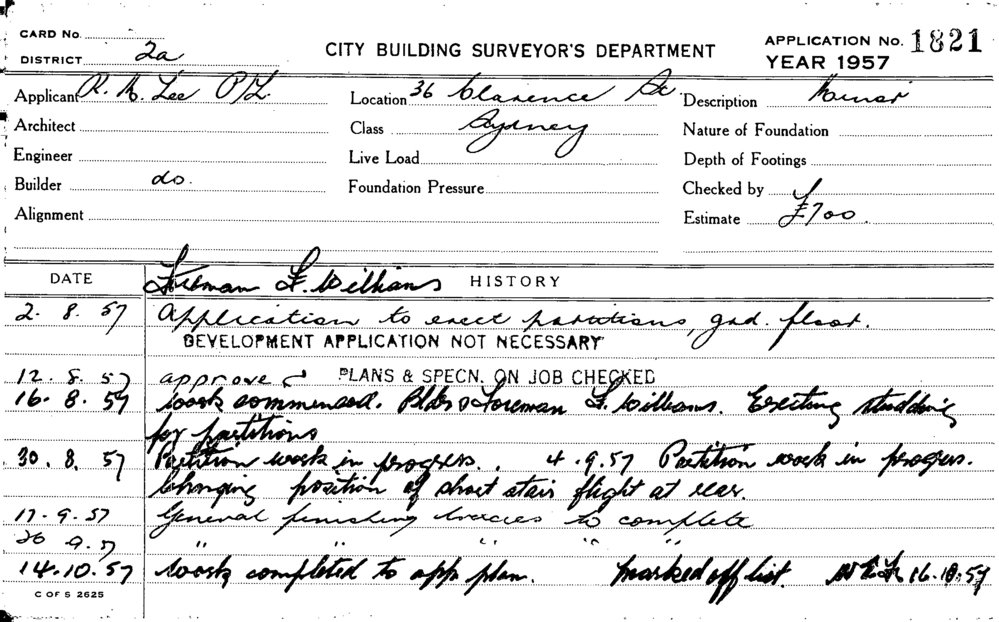 CARD No.
DISTRICT 2a
CITY BUILDING SURVEYOR'S DEPARTMENT
APPLICATION No. 1821
YEAR 1957
Applicant R. M. Lee P/L. Location 36 Clarence St Description Minor
Architect Class Sydney Nature of Foundation
Engineer Live Load Depth of Footings
Builder do. Foundation Pressure Checked by
Alignment Estimate £700.
DATE Foreman F. Williams HISTORY
2. 8. 57 Application to erect partitions, gnd. floor.
DEVELOPMENT APPLICATION NOT NECESSARY
12. 8. 57 approved PLANS & SPECN. ON JOB CHECKED
16. 8. 57 Work commenced. Bldrs Foreman F. Williams. Erecting studding
for partitions
30. 8. 57 Partition work in progress.. 4.9.57 Partition work in progress.
Changing position of short stair flight at rear.
17. 9. 57 General finishing trades to complete
26 9. 57 " " " " "
14. 10. 57 Work completed to app plan. Marked off list. 16.10.57
C OF S 2625